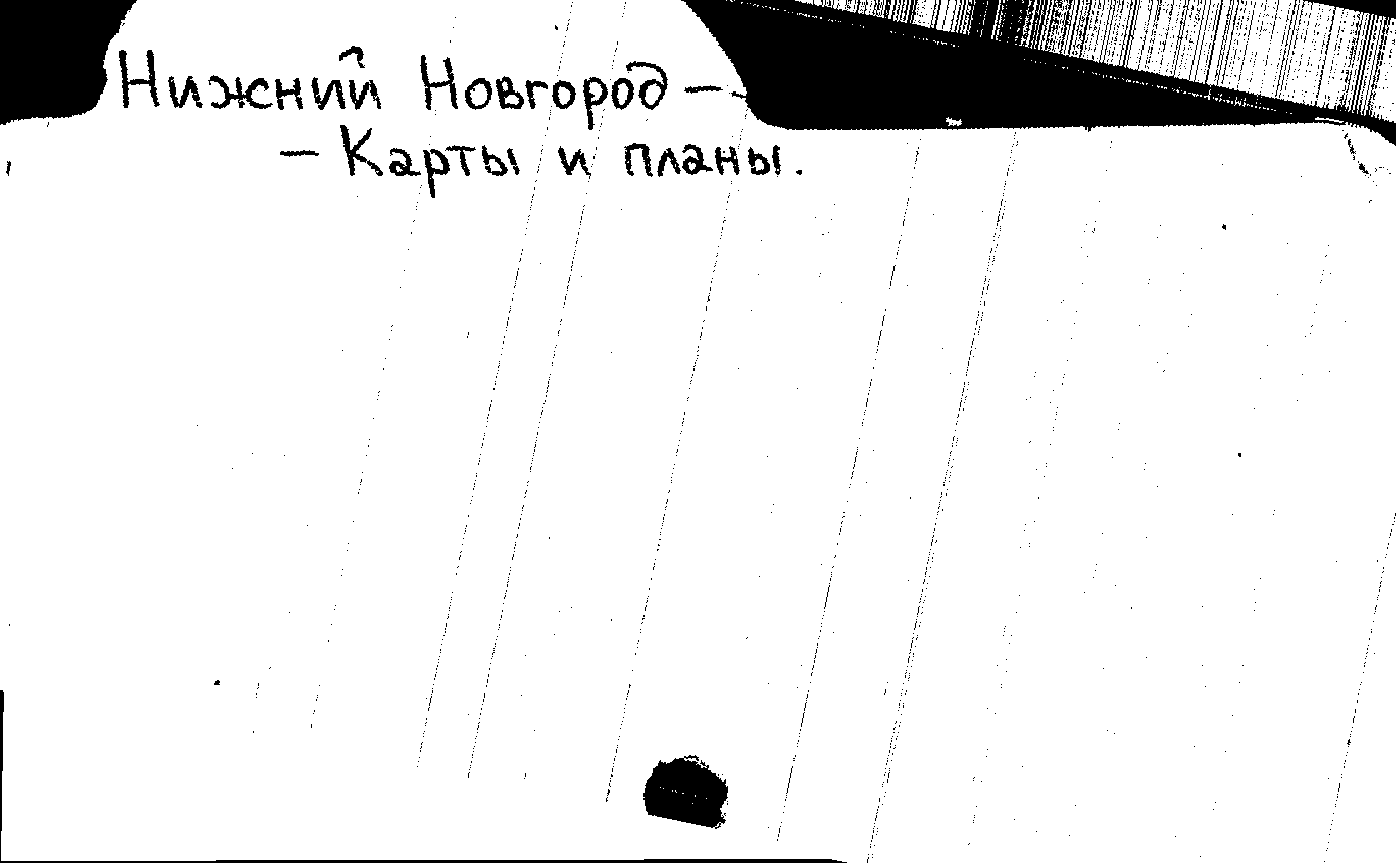 Нижний Новгород –
– Карты и планы.